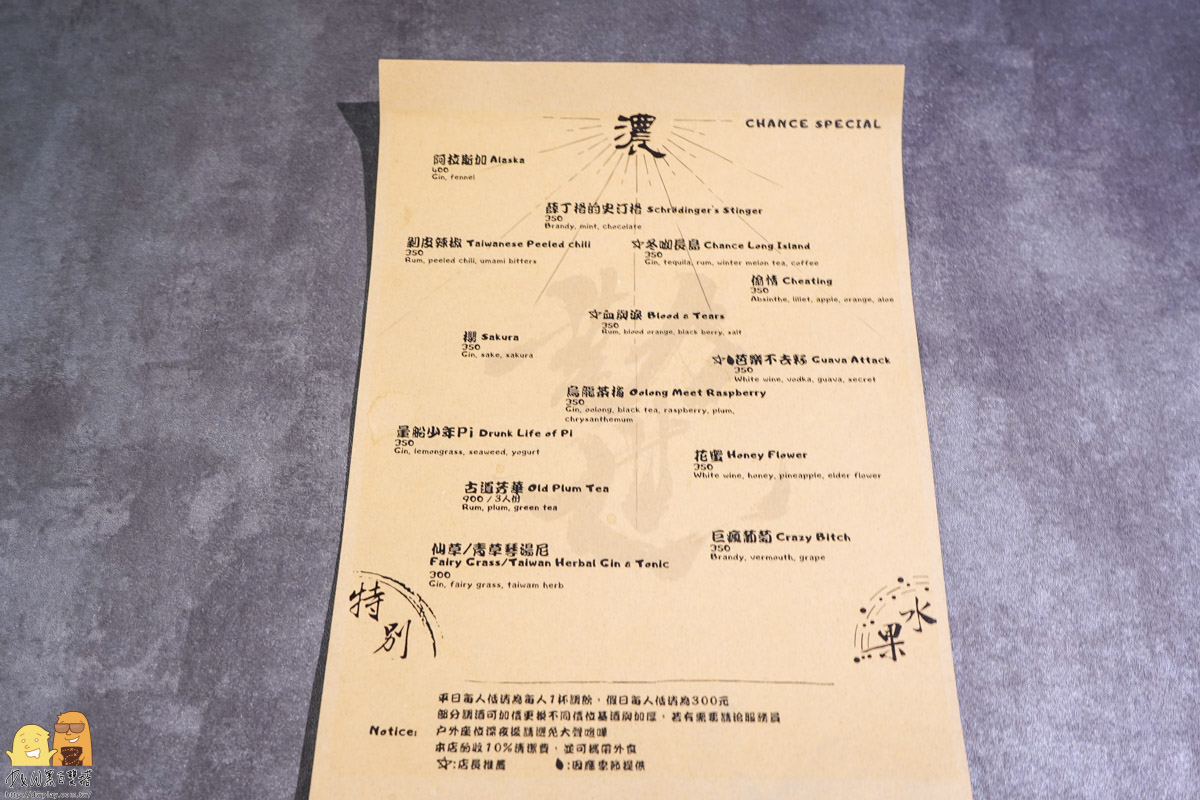 濃
CHANCE SPECIAL
阿拉斯加 Alaska
400
Gin, fennel
薛丁格的史汀格 Schrödinger's Stinger
350
Brandy, mint, chocolate
剝皮辣椒 Taiwanese Peeled chili
350
Rum, peeled chili, umami bitters
☆冬咖長島 Chance Long Island
350
Gin, tequila, rum, winter melon tea, coffee
偷情 Cheating
350
Absinthe, lillet, apple, orange, aloe
☆血與淚 Blood & Tears
350
Rum, blood orange, black berry, salt
櫻 Sakura
350
Gin, sake, sakura
☆芭樂不去籽 Guava Attack
350
White wine, vodka, guava, secret
烏龍茶梅 Oolong Meet Raspberry
350
Gin, oolong, black tea, raspberry, plum,
chrysanthemum
暈船少年Pi Drunk Life of Pi
350
Gin, lemongrass, seaweed, yogurt
花蜜 Honey Flower
350
White wine, honey, pineapple, elder flower
古酒芳華 Old Plum Tea
900 / 3人份
Rum, plum, green tea
巨瘋葡萄 Crazy Bitch
350
Brandy, vermouth, grape
仙草/青草琴湯尼
Fairy Grass/Taiwan Herbal Gin & Tonic
300
Gin, fairy grass, taiwam herb
特別
水果
Notice:
平日每人低消為每人1杯調飲，假日每人低消為300元
部分調酒可加價更換不同價位基酒與加厚，若有需要請洽服務員
戶外座位深夜還請避免大聲喧嘩
本店酌收10%清潔費，並可攜帶外食
☆:店長推薦
:因應季節提供